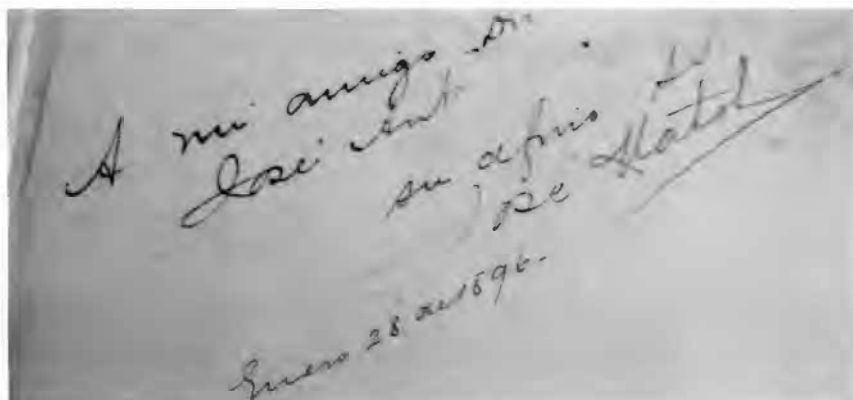 A mi amigo Dn
José Ant
su afmo
José Matos
Enero 28 de 1896.